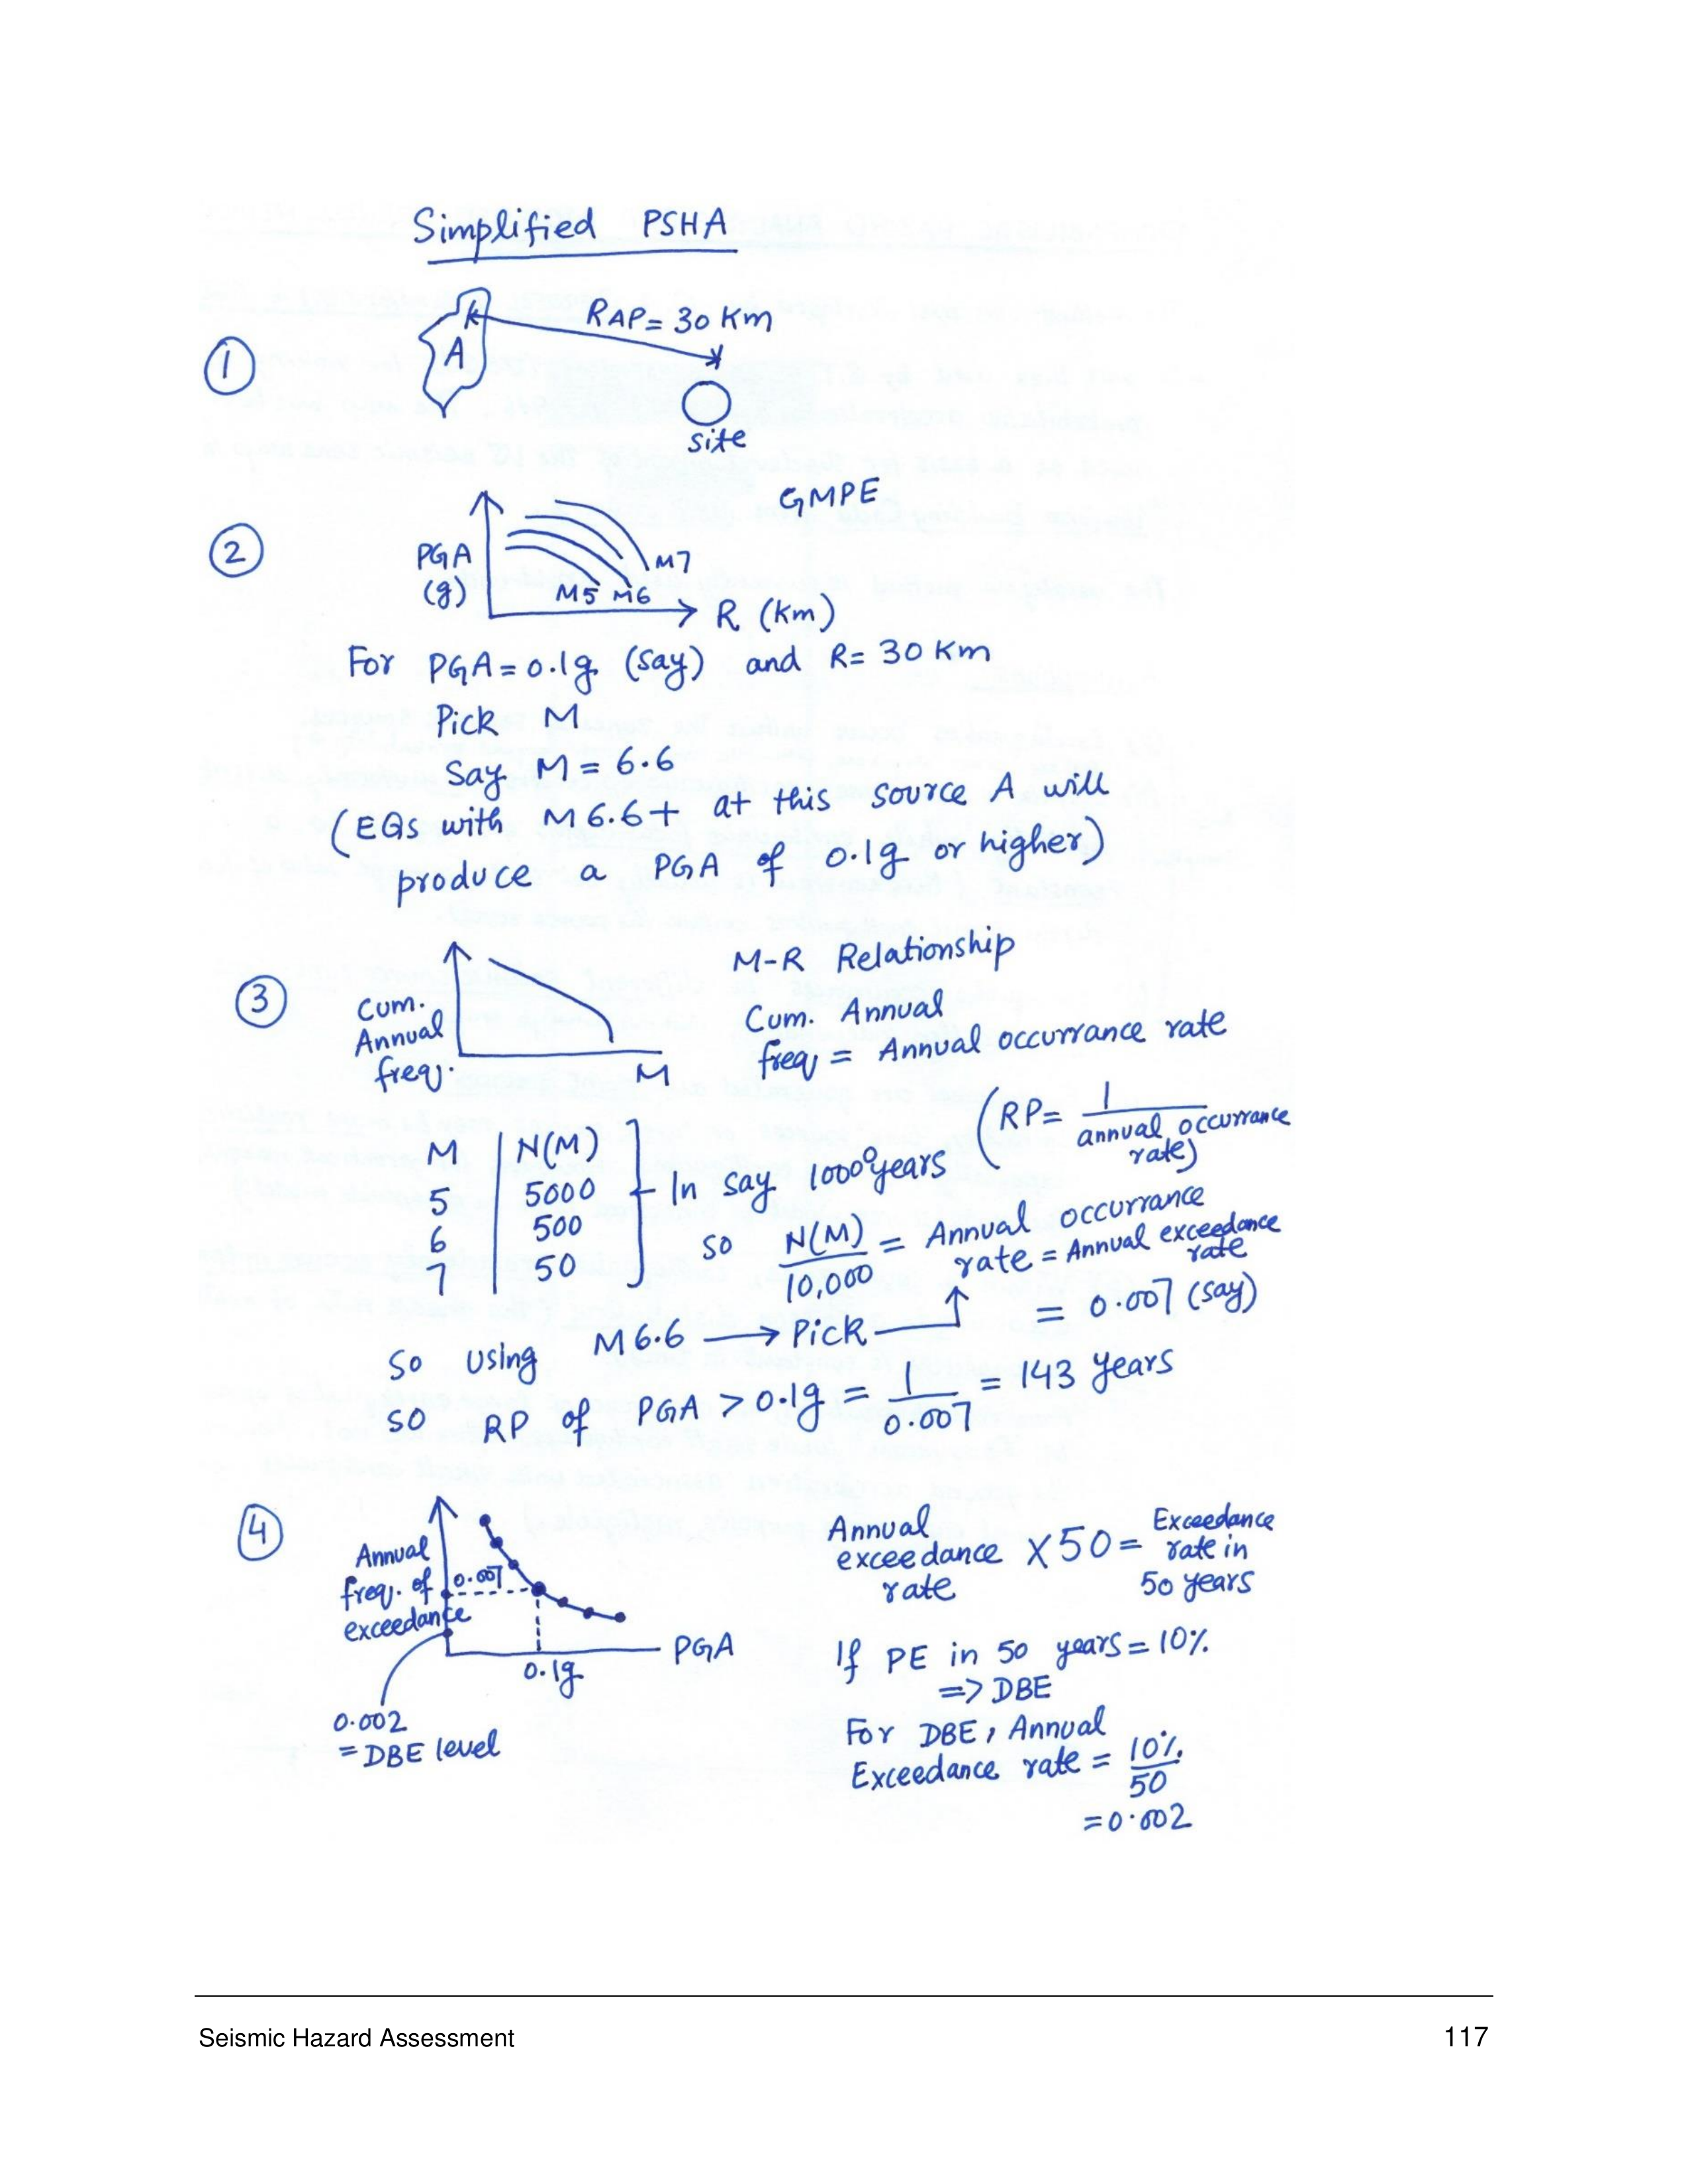 Simplified PSHA
1
A
RAP = 30 Km
site
2
GMPE
PGA
(g)
M5 M6 M7
R (Km)
For PGA = 0.1g (say) and R = 30 Km
Pick M
Say M = 6.6
(EQs with M 6.6+ at this source A will
produce a PGA of 0.1g or higher)
3
Cum.
Annual
freq.
M
M-R Relationship
Cum. Annual
freq = Annual occurrance rate
(RP = 1 / annual occurrance rate)
M | N(M)
5 | 5000
6 | 500
7 | 50
In say 10000 years
so N(M) / 10,000 = Annual occurrance rate = Annual exceedance rate
= 0.007 (say)
So using M 6.6 → Pick
so RP of PGA > 0.1g = 1 / 0.007 = 143 years
4
Annual
freq. of
exceedance
0.007
0.1g
PGA
0.002
= DBE level
Annual exceedance rate X 50 = Exceedance rate in 50 years
If PE in 50 years = 10%
=> DBE
For DBE, Annual
Exceedance rate = 10% / 50
= 0.002
Seismic Hazard Assessment 117